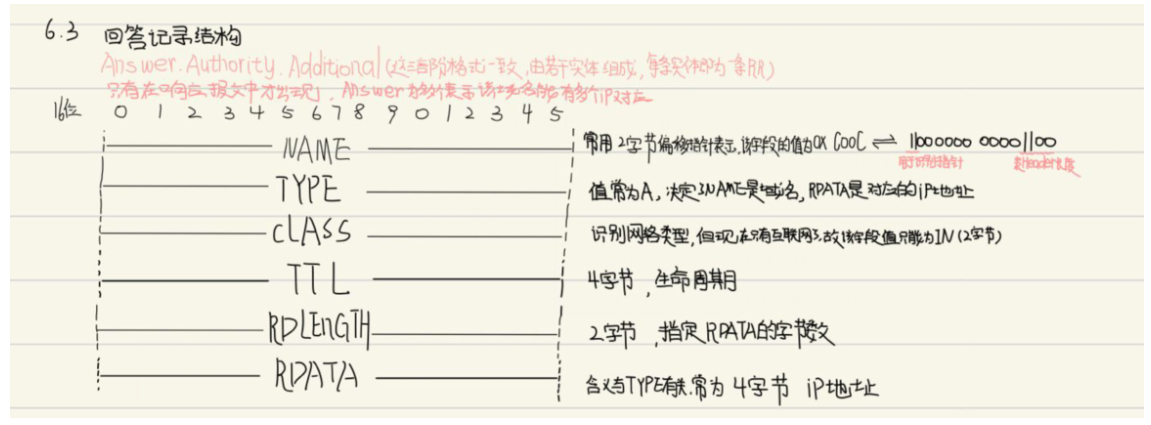 6.3 回答记录结构
Answer. Authority. Additional (这三部分格式一致,由若干实体组成,每条实体即为一条RR)
只有在响应报文中才出现, Answer 为多代表示该域名能有多个iP对应
16位 0 1 2 3 4 5 6 7 8 9 0 1 2 3 4 5
NAME 常用2字节偏移指针表示,该字段的值为0X C00C ⇌ 11000000 00001100
用于识别指针 是Header长度
TYPE 值常为A,决定了NAME是域名,RDATA是对应的iP地址
CLASS 识别网络类型,但现在只有互联网了,故该字段值只能为IN(2字节)
TTL 4字节,生命周期
RDLENGTH 2字节,指定RDATA的字节数
RDATA 含义与TYPE有关.常为4字节 iP地址